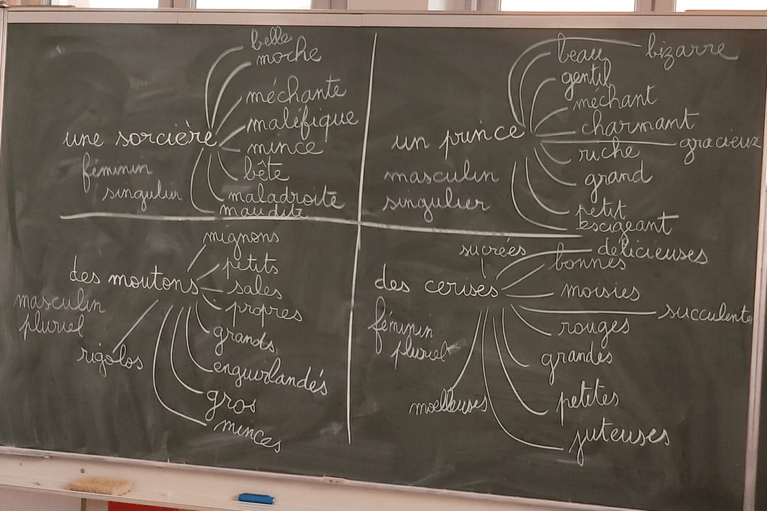 belle
moche
méchante
maléfique
une sorcière
mince
féminin
singulier
bête
maladroite
maudite
beau
bizarre
gentil
méchant
charmant
un prince
gracieux
riche
masculin
singulier
grand
petit
mignons
petits
des moutons
sales
masculin
pluriel
propres
grands
rigolos
enguirlandés
gros
minces
sucrées
délicieuses
bonnes
des cerises
moisies
succulentes
féminin
pluriel
rouges
grandes
moelleuses
petites
juteuses